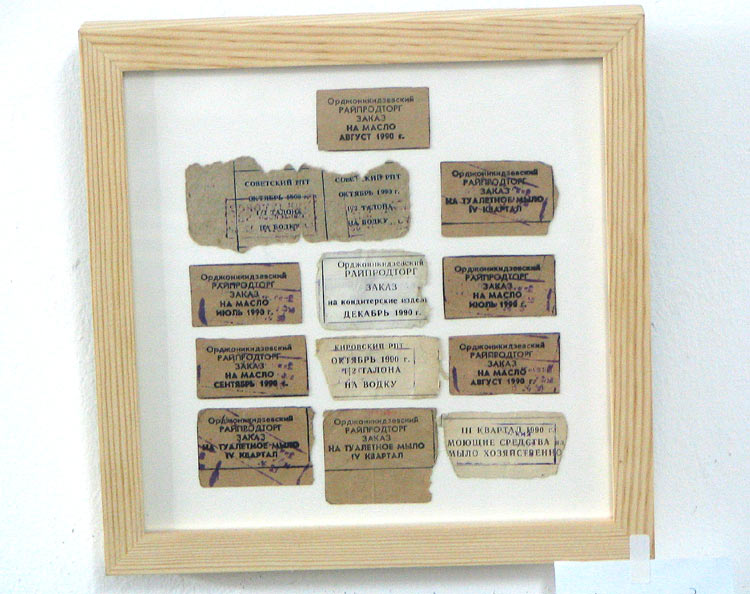 Орджоникидзевский
РАЙПРОДТОРГ
ЗАКАЗ
НА МАСЛО
АВГУСТ 1990 г.
СОВЕТСКИЙ РПТ
ОКТЯБРЬ 1990 г.
1/2 ТАЛОНА
НА ВОДКУ
СОВЕТСКИЙ РПТ
ОКТЯБРЬ 1990 г.
1/2 ТАЛОНА
НА ВОДКУ
Орджоникидзевский
РАЙПРОДТОРГ
ЗАКАЗ
НА ТУАЛЕТНОЕ МЫЛО
IV КВАРТАЛ
Орджоникидзевский
РАЙПРОДТОРГ
ЗАКАЗ
НА МАСЛО
ИЮЛЬ 1990 г.
Орджоникидзевский
РАЙПРОДТОРГ
ЗАКАЗ
на кондитерские издел
ДЕКАБРЬ 1990 г.
Орджоникидзевский
РАЙПРОДТОРГ
ЗАКАЗ
НА МАСЛО
ИЮЛЬ 1990 г.
Орджоникидзевский
РАЙПРОДТОРГ
ЗАКАЗ
НА МАСЛО
СЕНТЯБРЬ 1990 г.
КИРОВСКИЙ РПТ
ОКТЯБРЬ 1990 г.
1/2 ТАЛОНА
НА ВОДКУ
Орджоникидзевский
РАЙПРОДТОРГ
ЗАКАЗ
НА МАСЛО
АВГУСТ 1990 г.
Орджоникидзевский
РАЙПРОДТОРГ
ЗАКАЗ
НА ТУАЛЕТНОЕ МЫЛО
IV КВАРТАЛ
Орджоникидзевский
РАЙПРОДТОРГ
ЗАКАЗ
НА ТУАЛЕТНОЕ МЫЛО
IV КВАРТАЛ
III КВАРТАЛ 1990 г.
МОЮЩИЕ СРЕДСТВА
МЫЛО ХОЗЯЙСТВЕННО